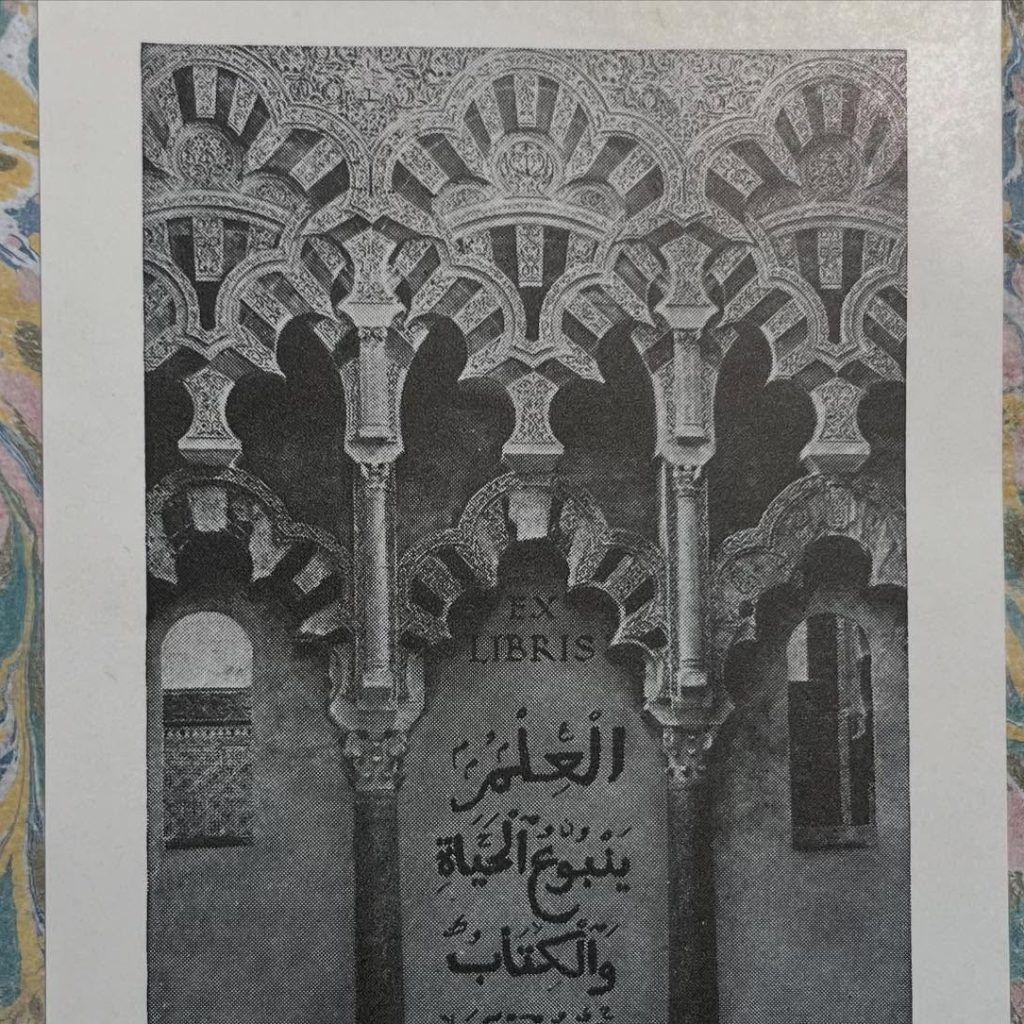 EX
LIBRIS
الْعِلْمُ
يَنْبُوعُ الْحَيَاةِ
وَالْكِتَابُ